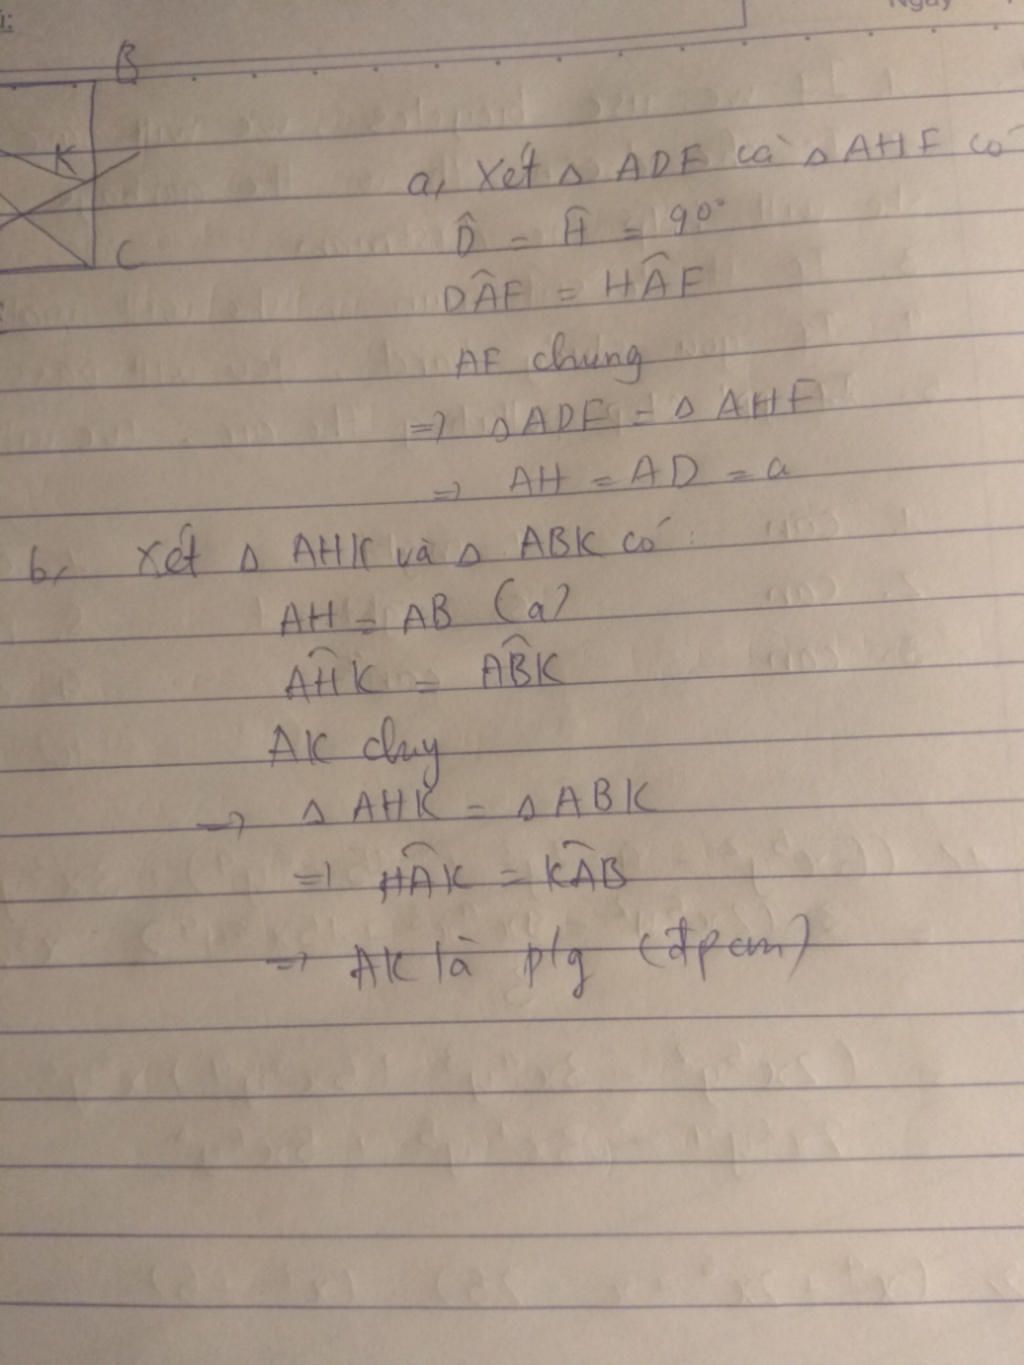 Ngày
B
K
C
a, Xét △ ADF và △ AHF có
D̂ = Ĥ = 90°
DÂF = HÂF
AF chung
=> △ ADF = △ AHF
=> AH = AD = a
b, Xét △ AHK và △ ABK có :
AH = AB (a)
AĤK = AB̂K
AK chug
=> △ AHK = △ ABK
=> HÂK = KÂB
=> AK là p/g (đpcm)